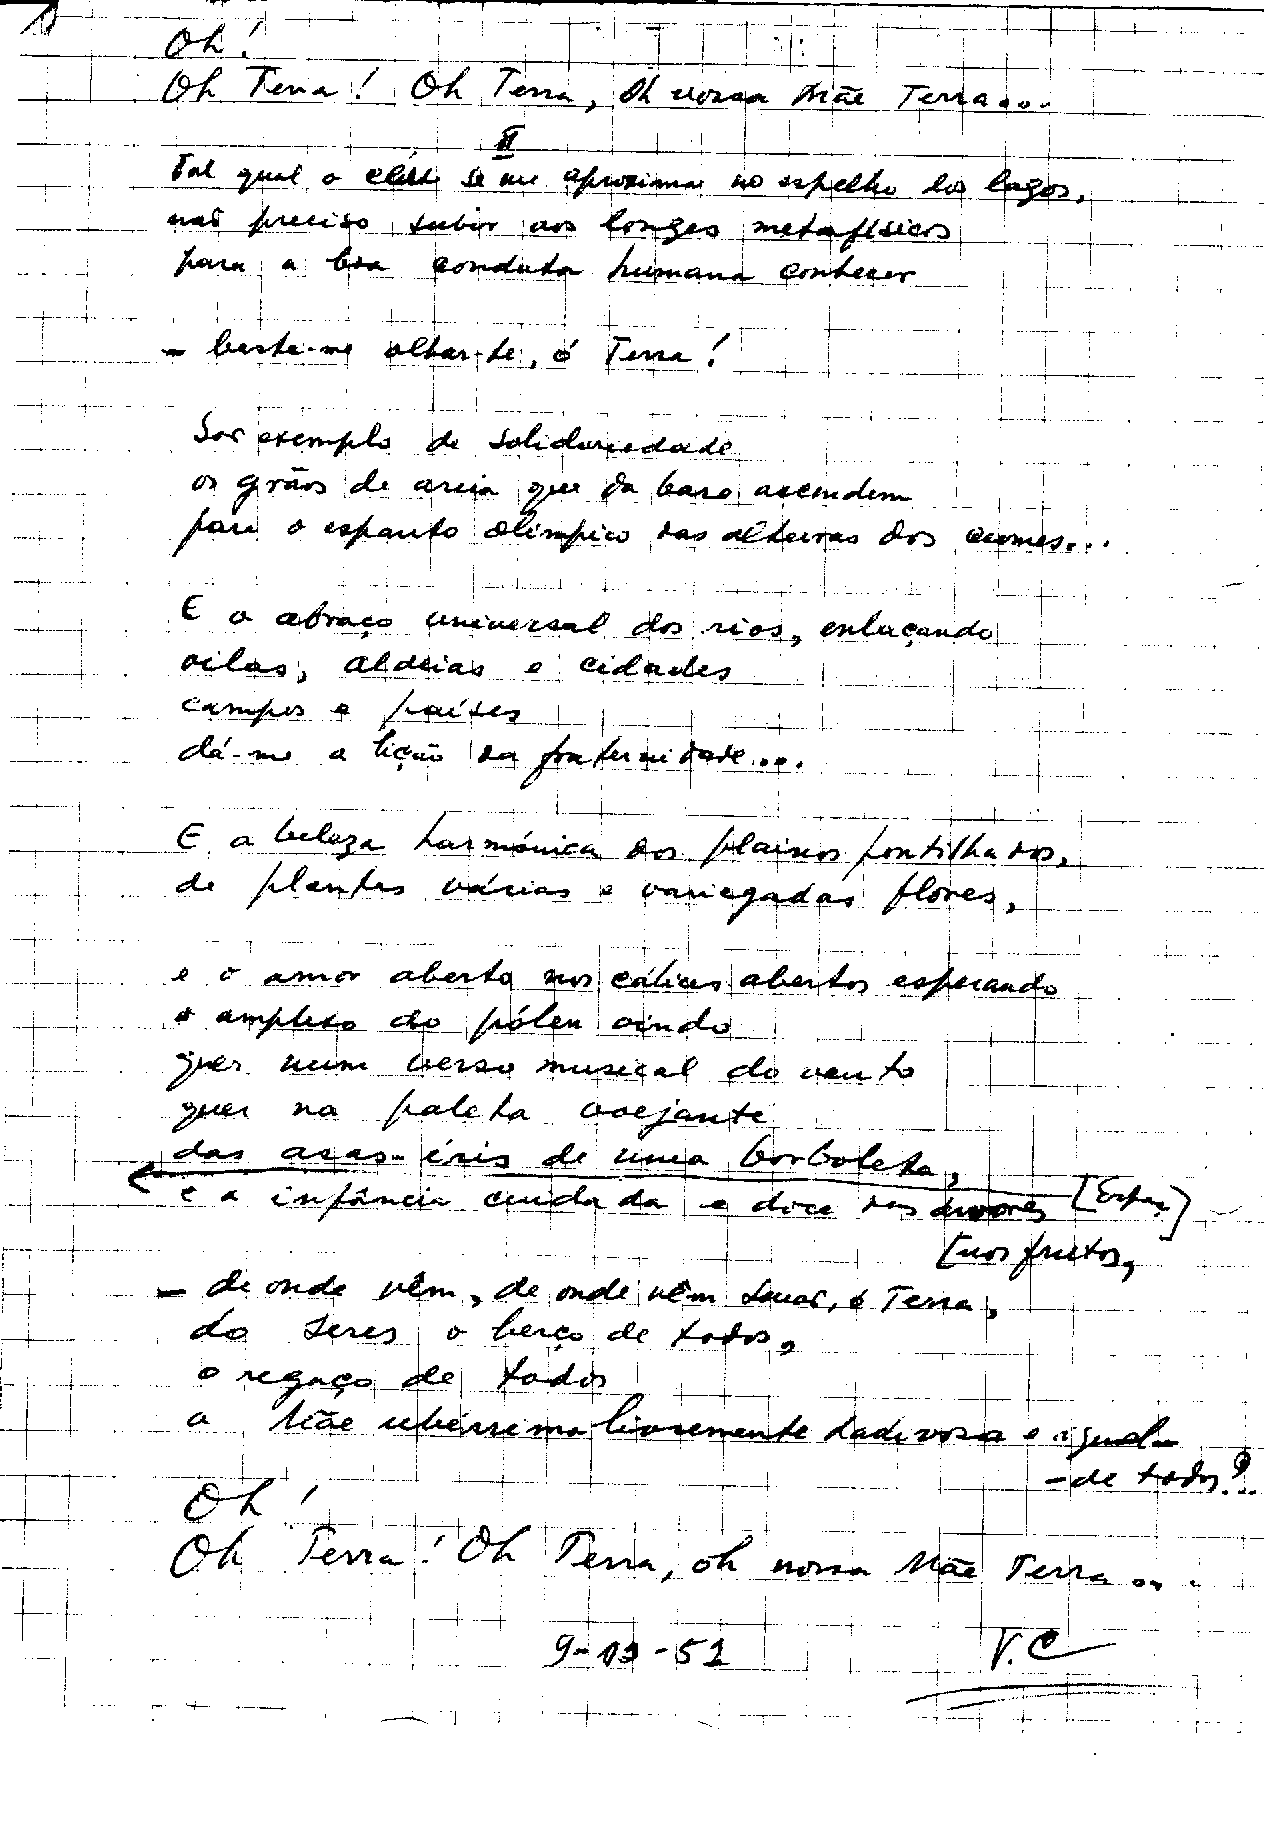 Oh!
Oh Terra! Oh Terra, oh nossa Mãe Terra....
II
Tal qual o se me aproxima no espelho dos lagos,
não preciso subir aos longes metafísicos
para a boa conduta humana conhecer
- basta-me olhar-te, ó Terra!
São exemplo de solidariedade
os grãos de areia que da base ascendem
para o espanto olímpico das alturas dos cumes...
E o abraço universal dos rios, enlaçando
vilas, aldeias e cidades
campos e países
dá-me a lição da fraternidade....
E a beleza harmónica dos plainos pontilhados,
de plantas várias e variegadas flores,
e o amor aberto nos cálices abertos esperando
o amplexo do pólen vindo
quer num verso musical do vento
quer na paleta voejante
das asas-íris de uma borboleta,
e a infância cuidada e doce das árvores [Espaç]
[nos frutos,
- de onde vêm, de onde vêm senão, ó Terra,
do seres o berço de todos,
o regaço de todos
a Mãe ubérrima livremente dadivosa e igual-
-de todos?...
Oh!
Oh Terra! Oh Terra, oh nossa Mãe Terra....
V.C